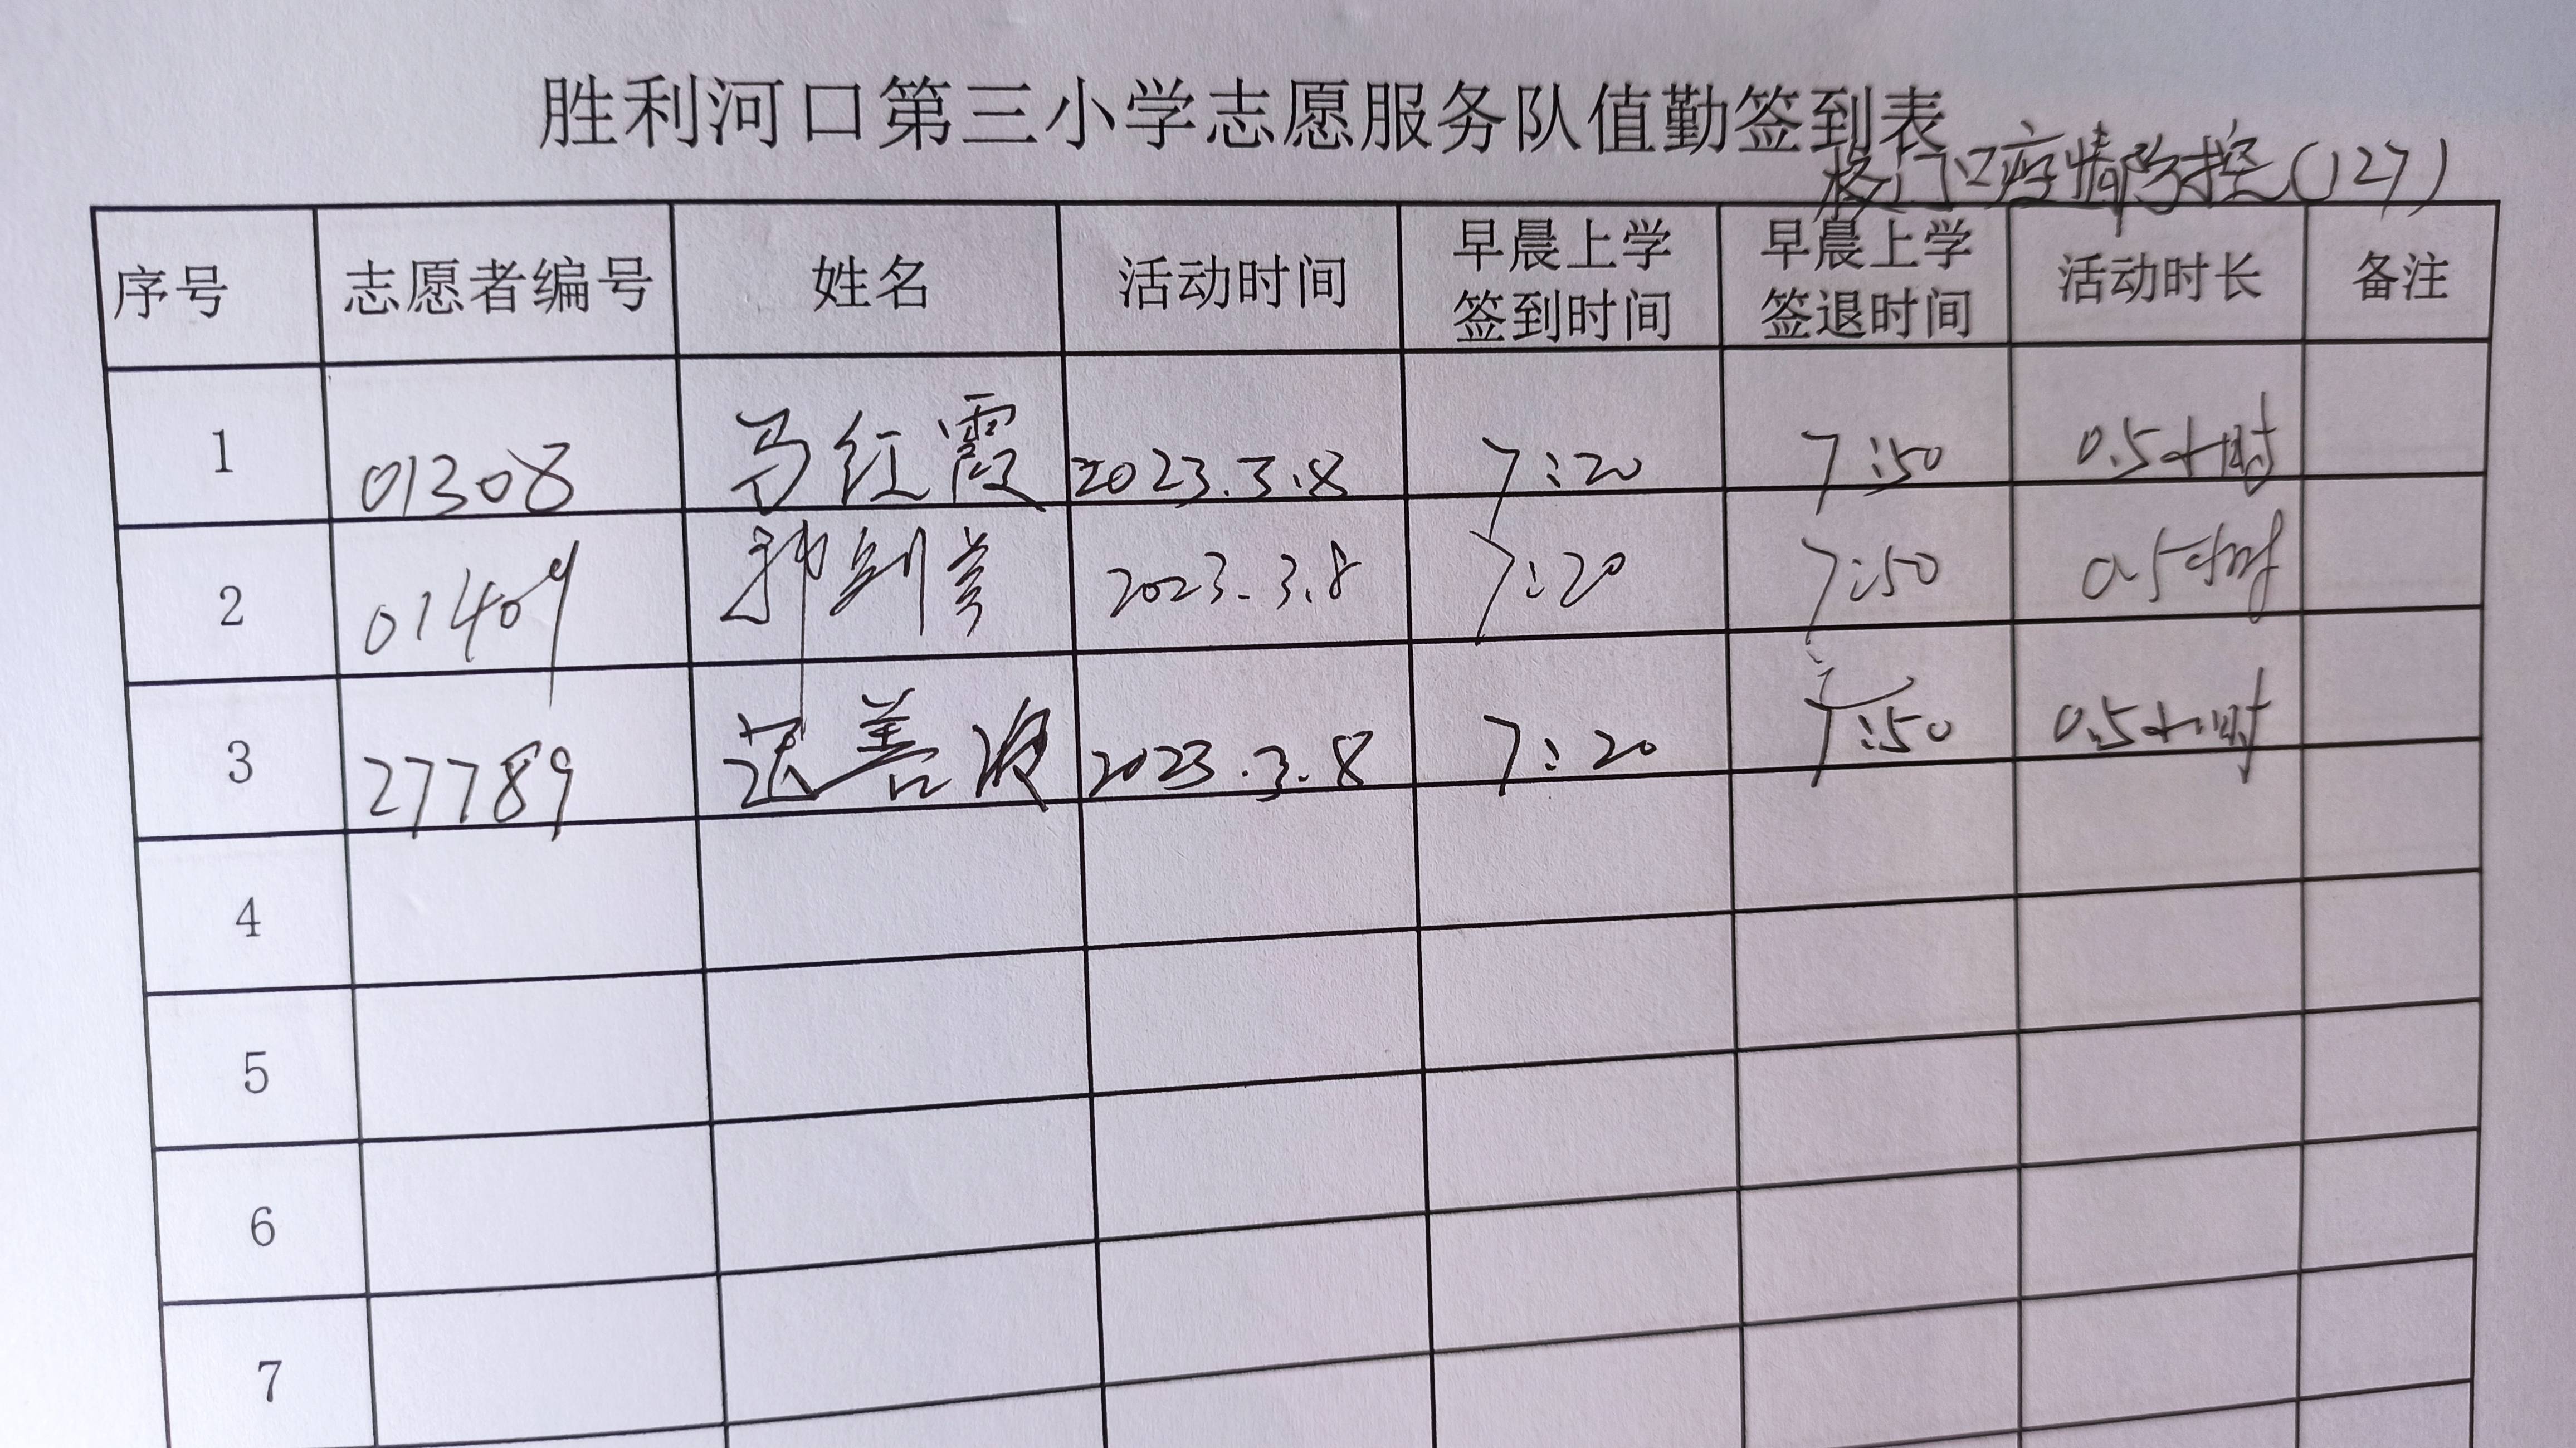 胜利河口第三小学志愿服务队值勤签到表
校门口疫情防控(127)
序号 志愿者编号 姓名 活动时间 早晨上学签到时间 早晨上学签退时间 活动时长 备注
1 01308 马红霞 2023.3.8 7:20 7:50 0.5小时
2 01409 2023.3.8 7:20 7:50 0.5小时
3 27789 善波 2023.3.8 7:20 7:50 0.5小时
4
5
6
7